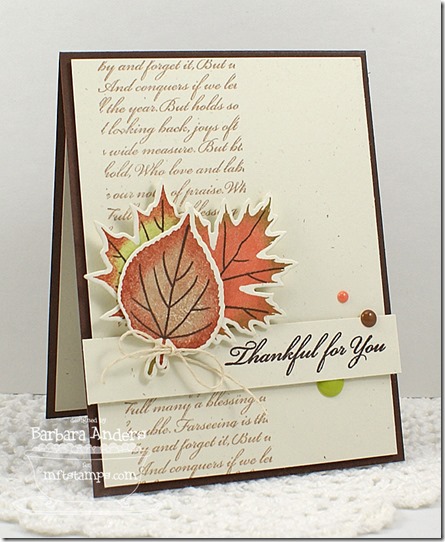 by and forget it, But u
And conquers if we let
the year. But holds so
looking back, joys oft
wide measure. But bl
hold. Who love and lab
our no of praise. Wh
Full blessing
Thankful for You
Full many a blessing u
ouble. Farseeing is th
by and forget it, But u
And conquers if we le
Barbara Anders
for
mftstamps.com